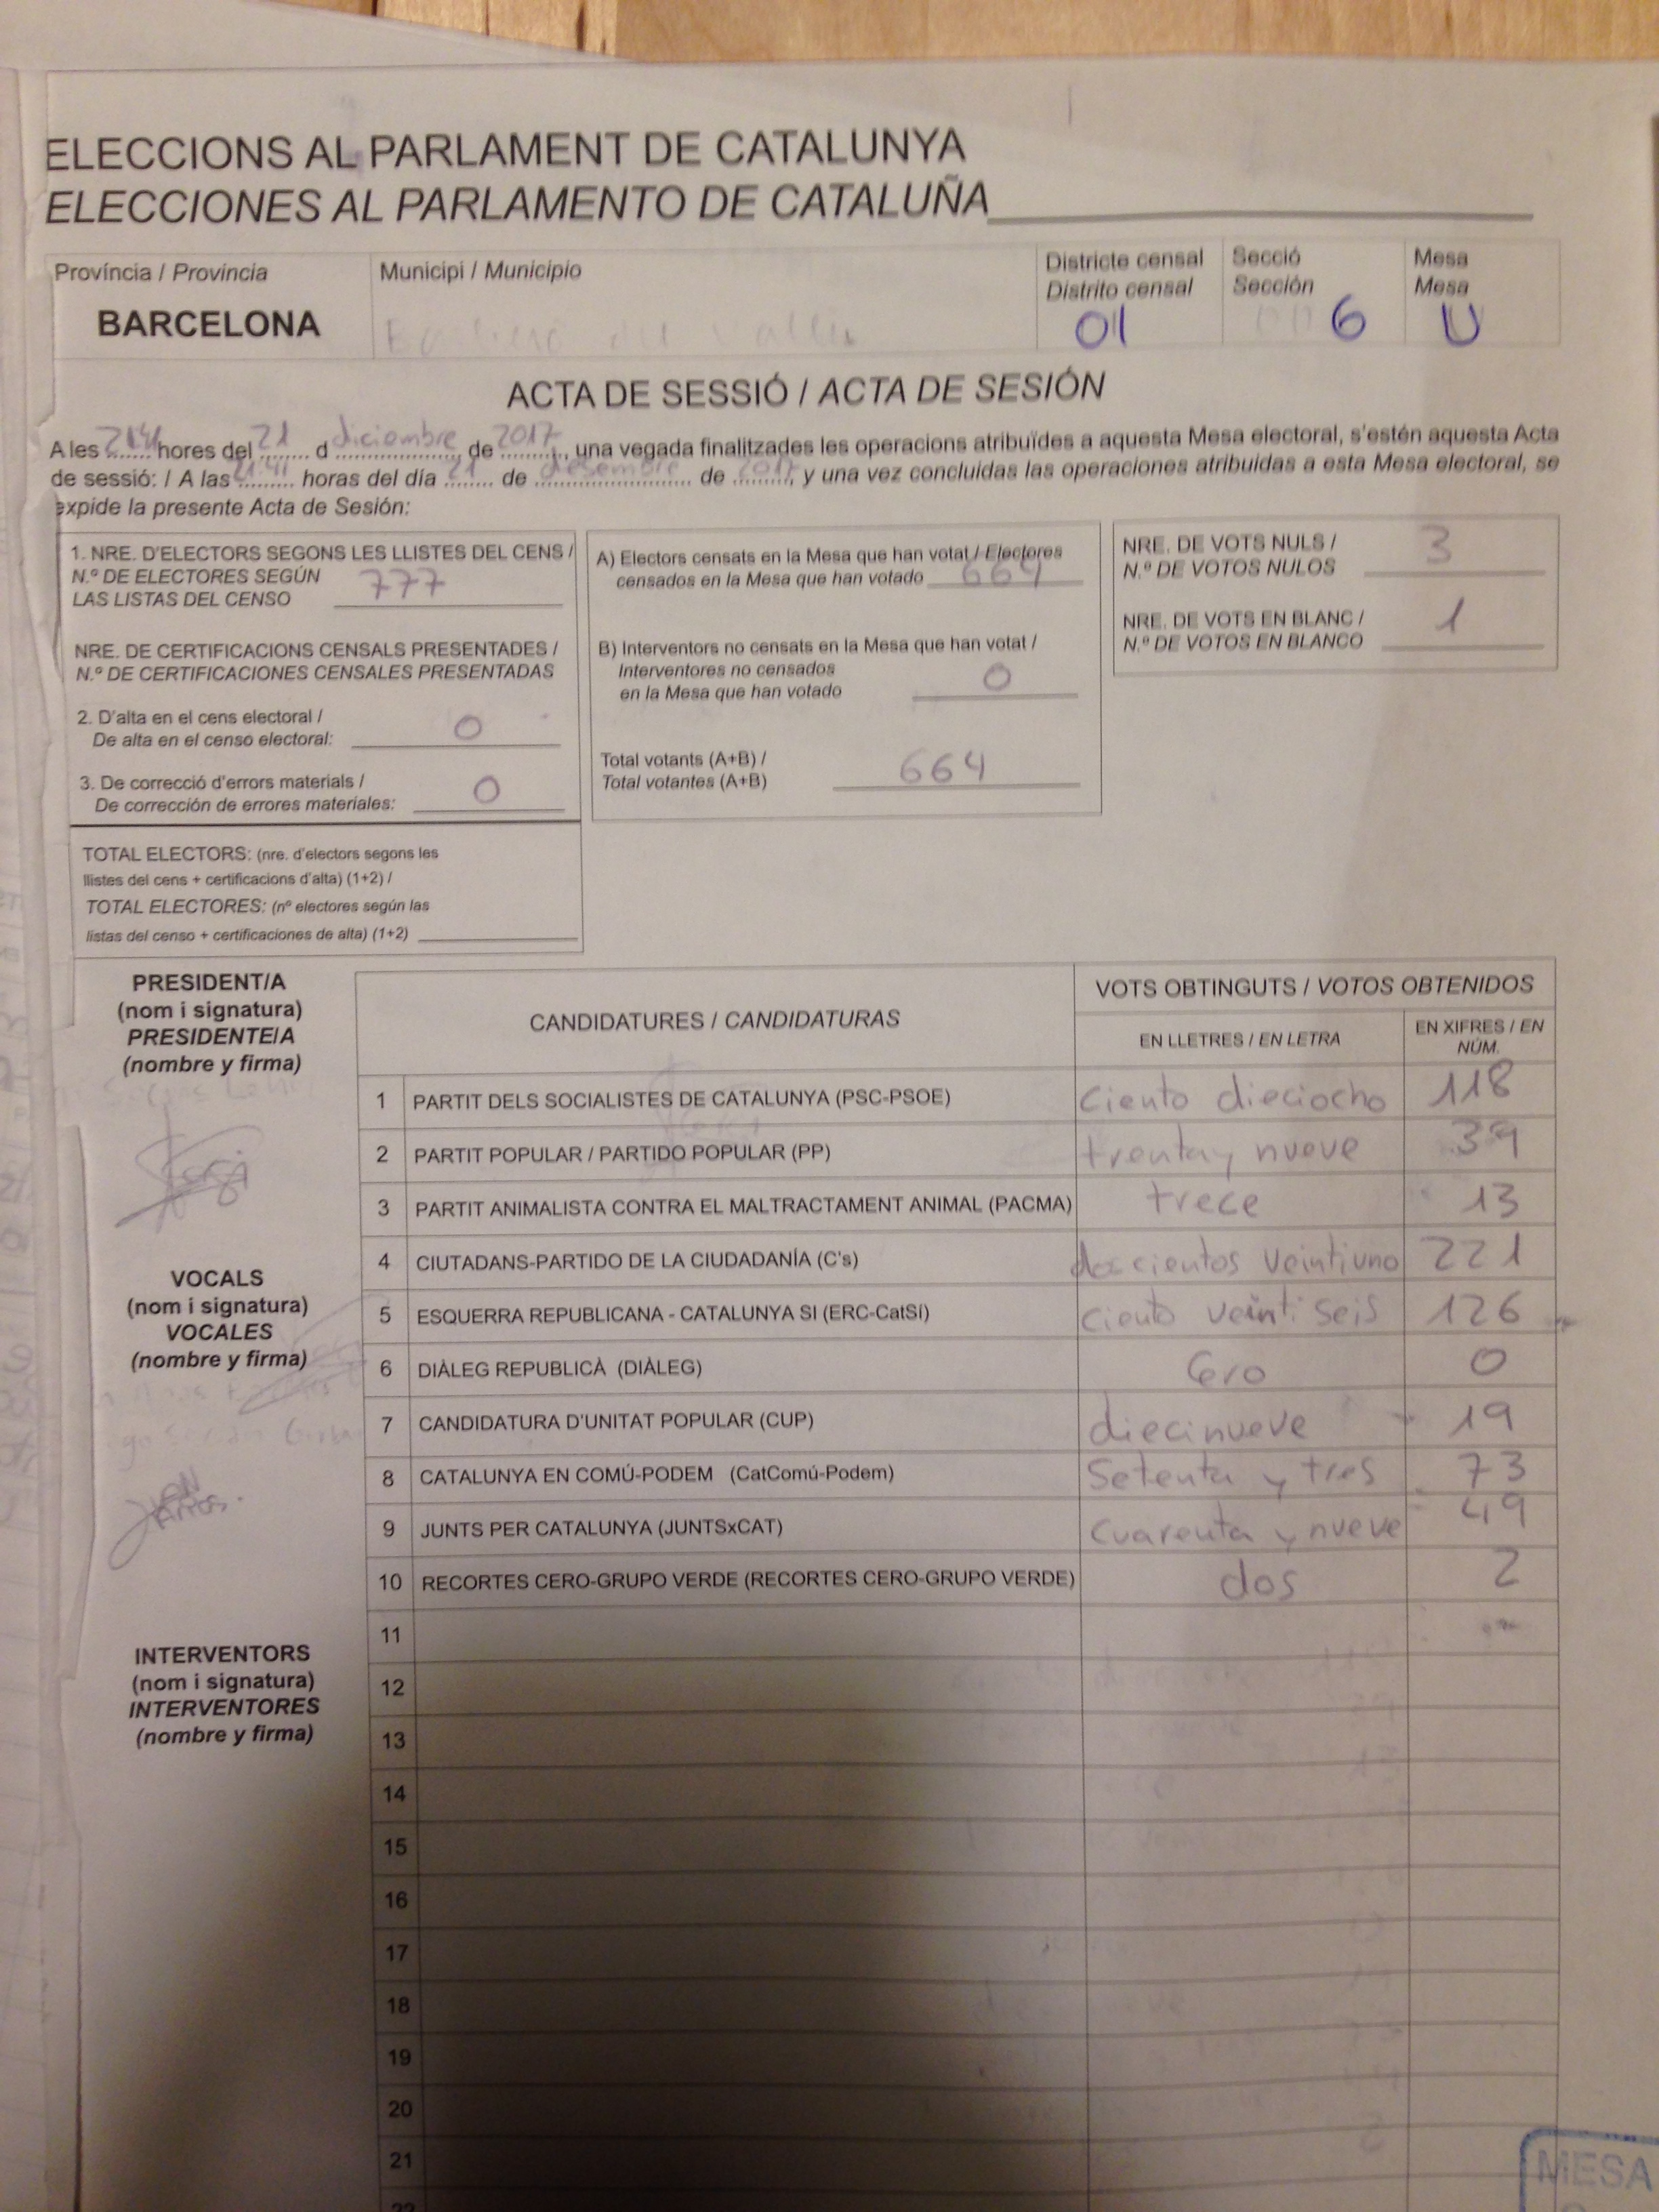 ELECCIONS AL PARLAMENT DE CATALUNYA
ELECCIONES AL PARLAMENTO DE CATALUÑA
Província / Provincia
BARCELONA
Municipi / Municipio
del Vallès
Districte censal
Distrito censal
01
Secció
Sección
6
Mesa
Mesa
U
ACTA DE SESSIÓ / ACTA DE SESIÓN
A les 21:41 hores del 21 d diciembre de 2017, una vegada finalitzades les operacions atribuïdes a aquesta Mesa electoral, s'estén aquesta Acta
de sessió: / A las 21:41 horas del día 21 de desembre de 2017, y una vez concluidas las operaciones atribuidas a esta Mesa electoral, se
expide la presente Acta de Sesión:
1. NRE. D'ELECTORS SEGONS LES LLISTES DEL CENS /
N.º DE ELECTORES SEGÚN
LAS LISTAS DEL CENSO 777
NRE. DE CERTIFICACIONS CENSALS PRESENTADES /
N.º DE CERTIFICACIONES CENSALES PRESENTADAS
2. D'alta en el cens electoral /
De alta en el censo electoral: 0
3. De correcció d'errors materials /
De corrección de errores materiales: 0
TOTAL ELECTORS: (nre. d'electors segons les
llistes del cens + certificacions d'alta) (1+2) /
TOTAL ELECTORES: (nº electores según las
listas del censo + certificaciones de alta) (1+2)
A) Electors censats en la Mesa que han votat / Electores
censados en la Mesa que han votado 664
B) Interventors no censats en la Mesa que han votat /
Interventores no censados
en la Mesa que han votado 0
Total votants (A+B) /
Total votantes (A+B) 664
NRE. DE VOTS NULS /
N.º DE VOTOS NULOS 3
NRE. DE VOTS EN BLANC /
N.º DE VOTOS EN BLANCO 1
PRESIDENT/A
(nom i signatura)
PRESIDENTE/A
(nombre y firma)
VOCALS
(nom i signatura)
VOCALES
(nombre y firma)
INTERVENTORS
(nom i signatura)
INTERVENTORES
(nombre y firma)
CANDIDATURES / CANDIDATURAS
VOTS OBTINGUTS / VOTOS OBTENIDOS
EN LLETRES / EN LETRA
EN XIFRES / EN
NÚM.
1 PARTIT DELS SOCIALISTES DE CATALUNYA (PSC-PSOE) Ciento dieciocho 118
2 PARTIT POPULAR / PARTIDO POPULAR (PP) trenta y nueve 39
3 PARTIT ANIMALISTA CONTRA EL MALTRACTAMENT ANIMAL (PACMA) trece 13
4 CIUTADANS-PARTIDO DE LA CIUDADANÍA (C's) doscientos veintiuno 221
5 ESQUERRA REPUBLICANA - CATALUNYA SI (ERC-CatSí) Ciento veinti seis 126
6 DIÀLEG REPUBLICÀ (DIÀLEG) Cero 0
7 CANDIDATURA D'UNITAT POPULAR (CUP) diecinueve 19
8 CATALUNYA EN COMÚ-PODEM (CatComú-Podem) Setenta y tres 73
9 JUNTS PER CATALUNYA (JUNTSxCAT) Cuarenta y nueve 49
10 RECORTES CERO-GRUPO VERDE (RECORTES CERO-GRUPO VERDE) dos 2
11
12
13
14
15
16
17
18
19
20
21
22
MESA